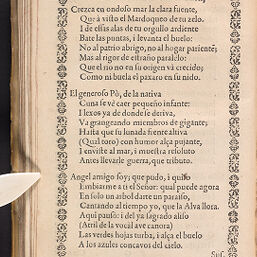 Crezca en ondoso mar la clara fuente,
Que à visto el Mardoqueo de tu zelo.
I de essas alas de tu orgullo ardiente
Bate las puntas, i levanta el buelo:
No al patrio abrigo, no al hogar pariente;
Mas al rigor de estraño paralelo:
Que el rio no en su origen và crecido;
Como ni buela el paxaro en su nido.
El generoso Pò, de la nativa
Cuna se vè caer pequeño infante:
I lexos ya de donde se deriva,
Va grangeando miembros de gigante;
Hasta que su lunada frente altiva
(Qual toro) con humor alça pujante,
I enviste al mar, i muestra resoluto
Antes llevarle guerra, que tributo.
Angel amigo soy; que pudo, i quiso
Embiarme a ti el Señor: qual puede agora
En solo un arbol darte un paraiso,
Cantando al tiempo yo, que la Alva llora.
Aqui pausò: i del ya sagrado aliso
(Atril de la vocal ave canora)
Las verdes hojas turba, i alça el buelo
A los azules concavos del cielo.